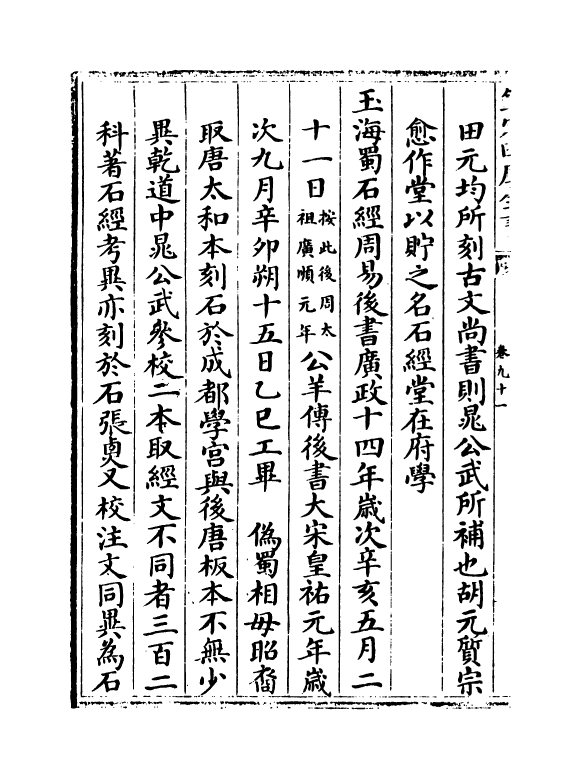 卷九十一
田元均所刻古文尚書則晁公武所補也胡元質宗
愈作堂以貯之名石經堂在府學
玉海蜀石經周易後書廣政十四年歲次辛亥五月二
十一日按此後周太祖廣順元年公羊傳後書大宋皇祐元年歲
次九月辛卯朔十五日乙巳工畢　偽蜀相毋昭裔
取唐太和本刻石於成都學宮與後唐板本不無少
異乾道中晁公武參校二本取經文不同者三百二
科著石經考異亦刻於石張㚖又校注文同異為石